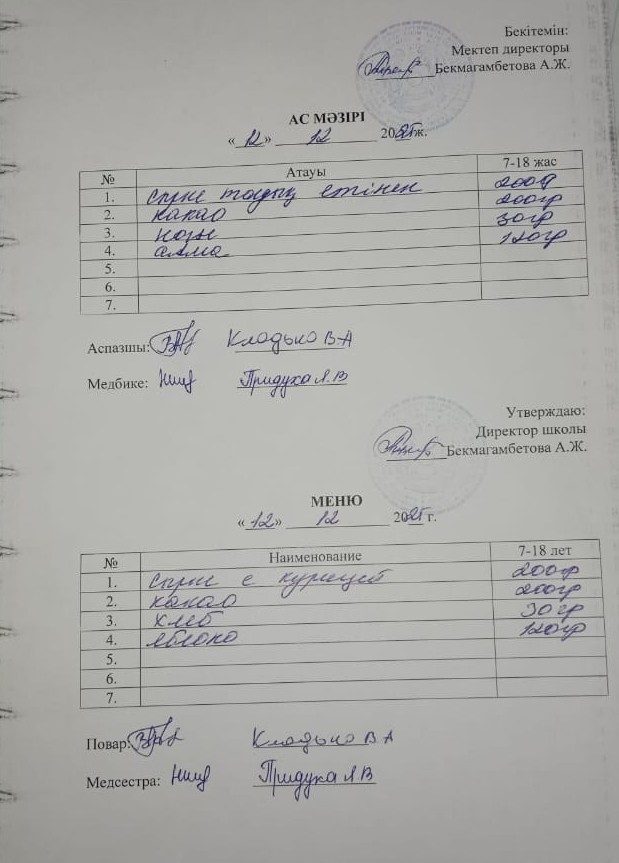 Бекітемін:
Мектеп директоры
Бекмагамбетова А.Ж.
АС МӘЗІРІ
«12» 12 2025ж.
№ Атауы 7-18 жас
1. тауық етінен 200гр
2. какао 200гр
3. нан 30гр
4. алма 120гр
5.
6.
7.
Аспазшы: Кладько В А
Медбике: Придуха Л.В
Утверждаю:
Директор школы
Бекмагамбетова А.Ж.
МЕНЮ
«12» 12 2025 г.
№ Наименование 7-18 лет
1. с курицей 200гр
2. какао 200гр
3. хлеб 30гр
4. яблоко 120гр
5.
6.
7.
Повар: Кладько В А
Медсестра: Придуха Л В